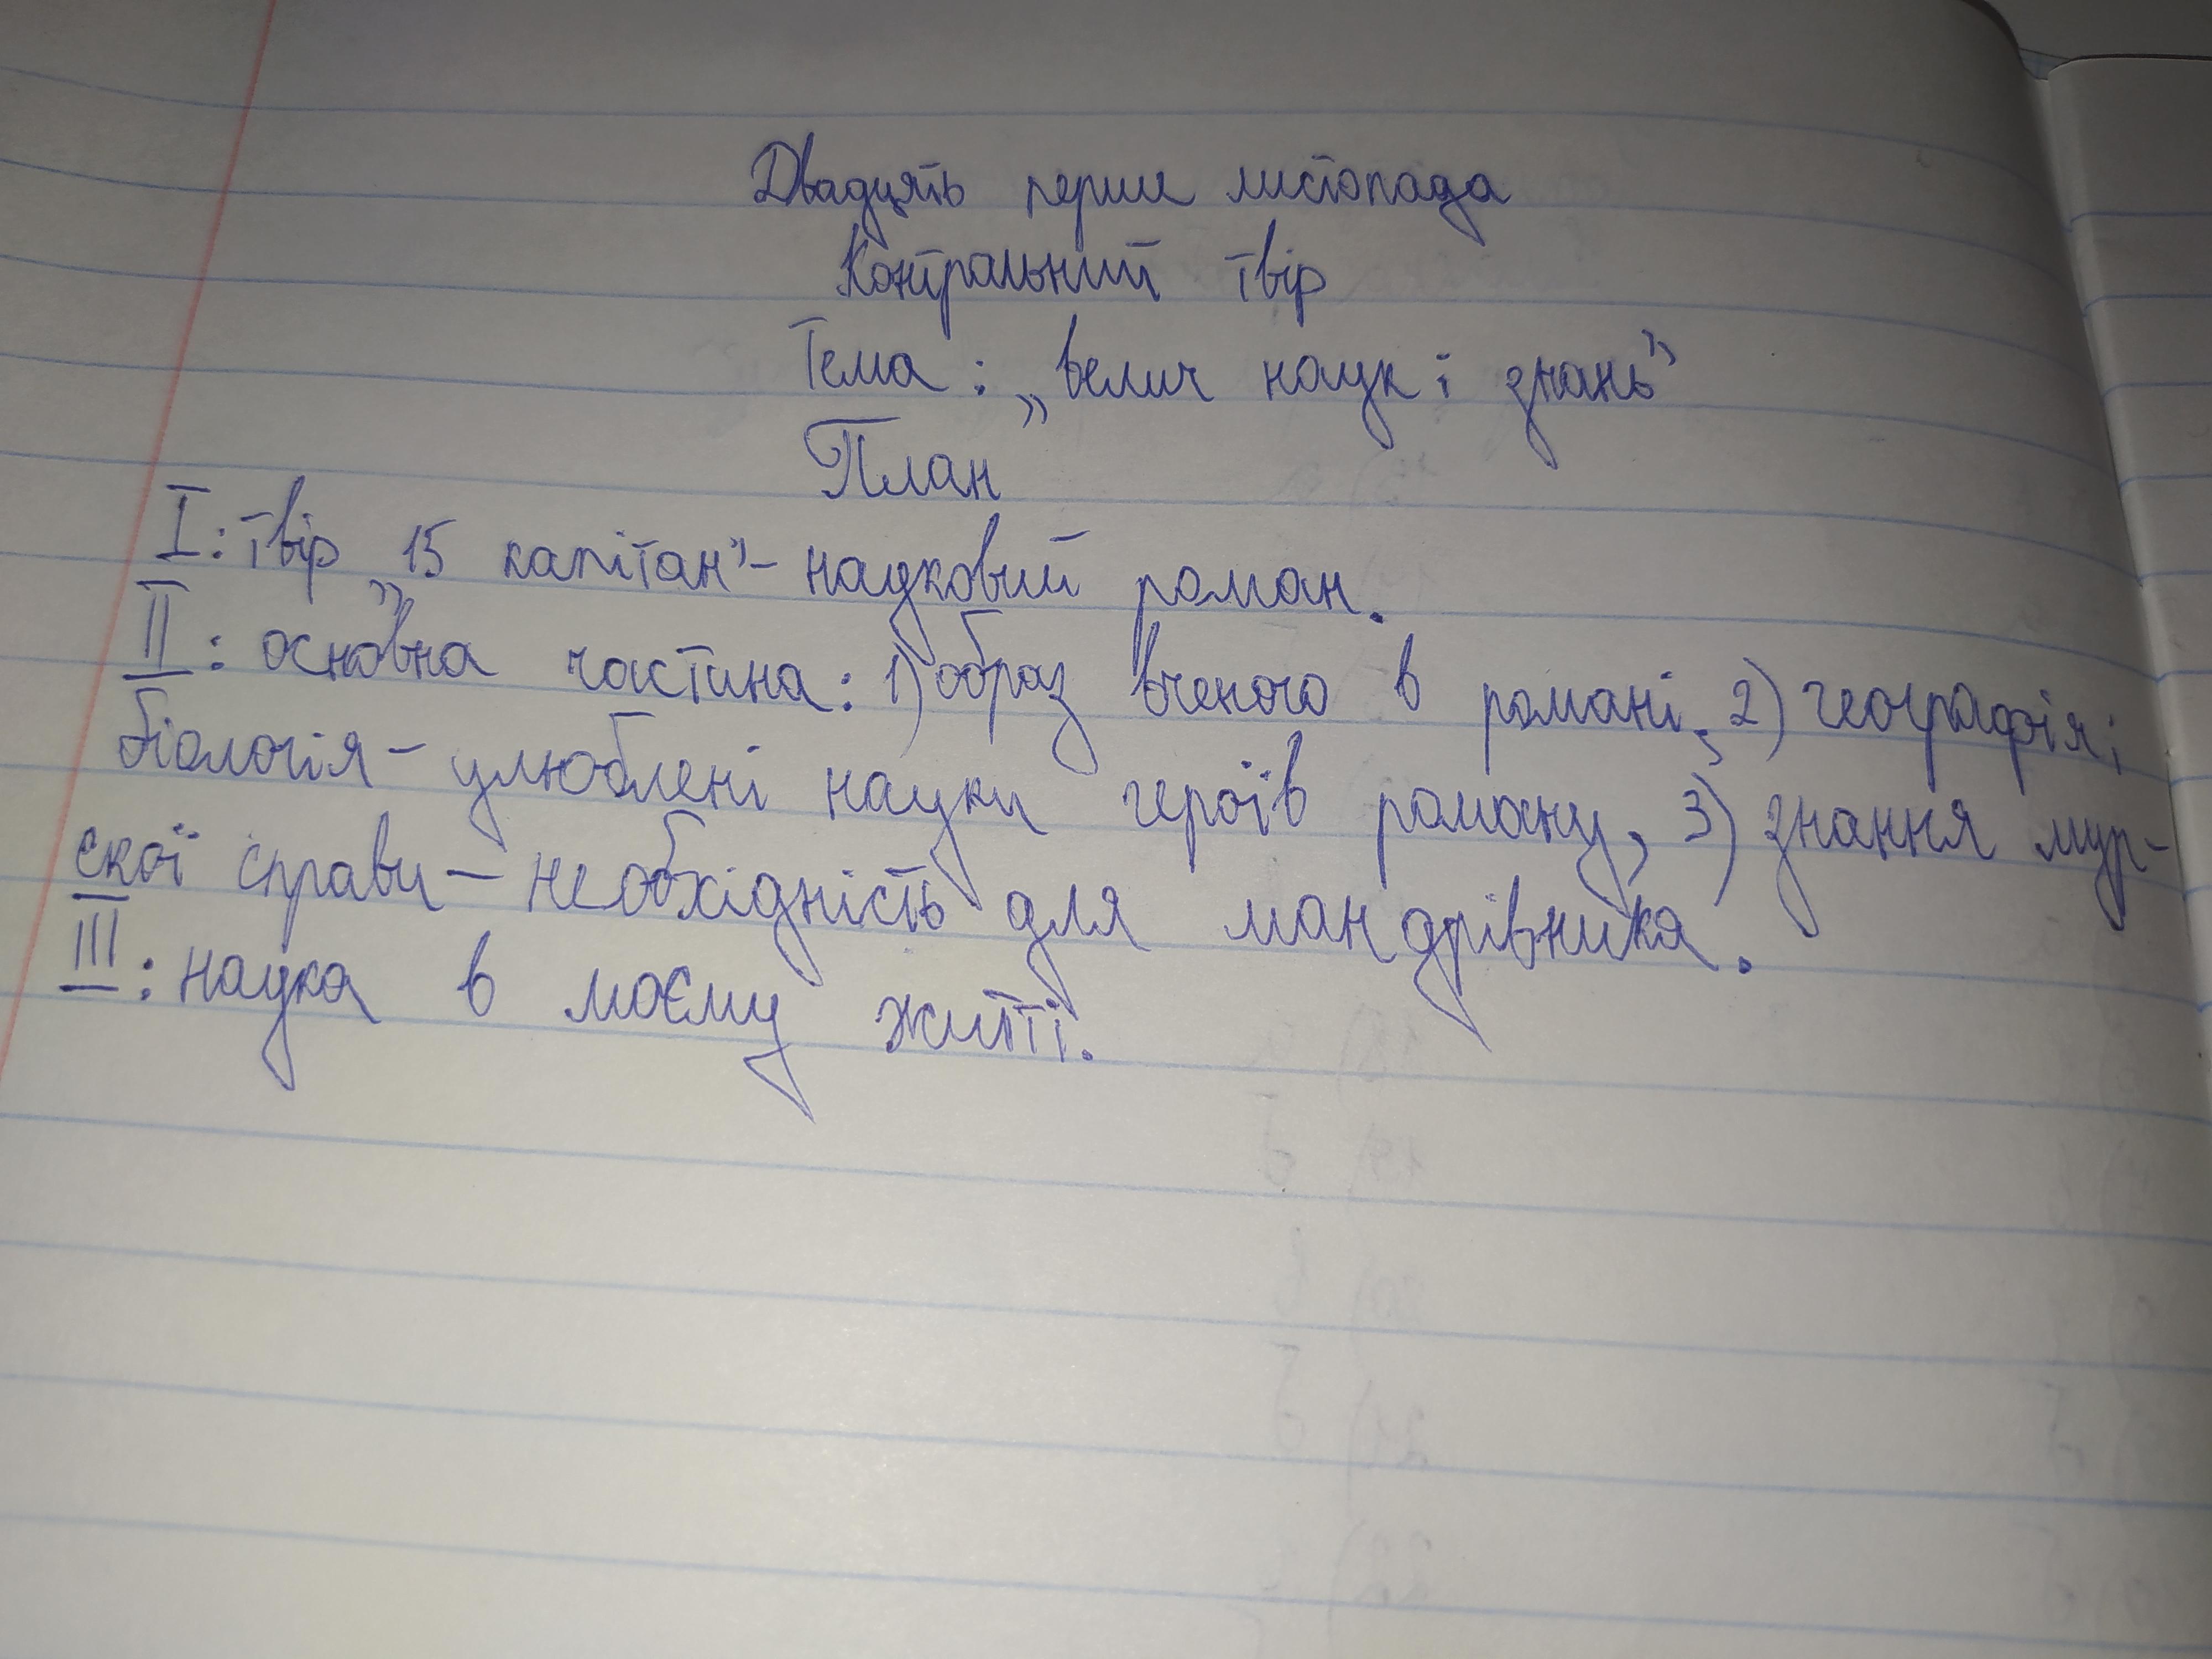 Двадцять перше листопада
Контрольний твір
Тема: „велич наук і знань”
План
I: твір „15 капітан” – науковий роман.
II: основна частина: 1) образ вченого в романі, 2) географія;
біологія – улюблені науки героїв роману, 3) знання мур-
скої справи – необхідність для мандрівника.
III: наука в моєму житті.